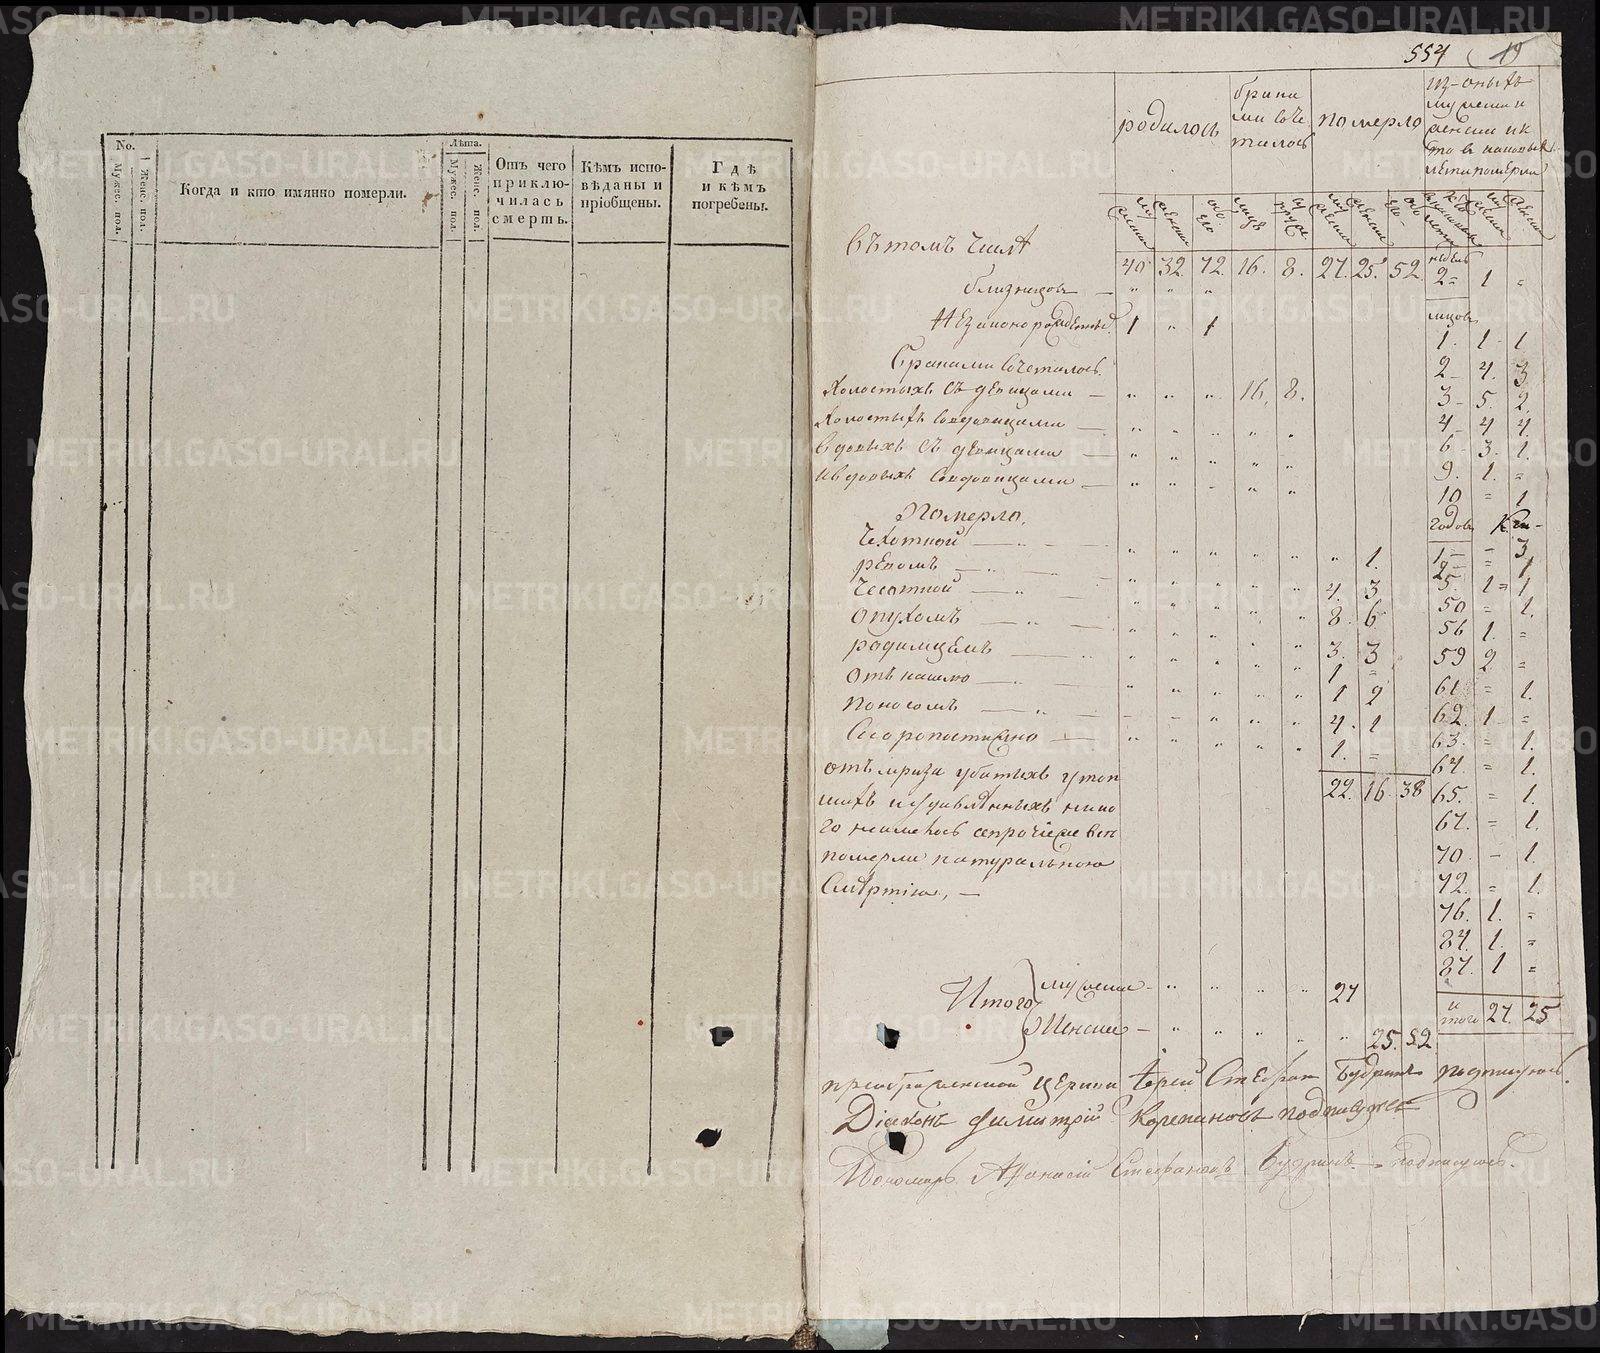 No.
Мужес. пол.
Женс. пол.
Когда и кто имянно померли.
Лѣта.
Мужес. пол.
Женс. пол.
Отъ чего
приклю-
чилась
смерть.
Кѣмъ испо-
вѣданы и
пріобщены.
Гдѣ
и кѣмъ
погребены.
554 19
родилось
брака
ми соче
талось
померло
из оныхъ
мужеска и
женска и к
то в каковыхъ
лѣтахъ померли
Въ томъ числѣ
40 32. 72. 16. 8. 27. 25. 52
недель
2 = 1 =
близнецовъ — " " "
незаконорожденныхъ 1 " 1
месцовъ
1. 1. 1
Браками сочеталось.
2 - 4. 3
Холостыхъ съ девицами — " " " 16. 8.
3 - 5. 2.
Холостыхъ со вдовицами — " " " " "
4 - 4 4.
вдовыхъ съ девицами — " " " " "
6 - 3. 1.
и вдовыхъ со вдовицами — " " - " "
9. 1. =
10 = 1
Померло.
годовъ
Чехотной — " " " " " " 1.
1 - - 3
2 - = 1
реѣзомъ
5. 1 = 1
Чесотной 4. 3
50 = 1.
Опухомъ 8. 6
56 1. =
родимцемъ 3. 3
59 2 =
Отъ кашлю 1 =
61 = 1.
Поносомъ 1 2
62. 1 =
4. 1
63. = 1.
Скоропостижно 1. =
64. = 1.
22. 16 38
отъ мраза убитыхъ утоп
65. = 1.
шихъ и удавленныхъ нико
67. = 1.
го не имелось а прочіе же всѣ
70. - 1.
померли натуральною
72. = 1.
Смертію, —
76. 1. =
84. 1. =
87. 1 =
Итого
мужеска — " " " " 27
женска — " " " " " 25. 52
и
того 27. 25
преображенской церкви Іерей Стефанъ Будринъ подписуюсь.
Діаконъ Димитрій Корепановъ подписуюсь
Пономарь Афанасій Стефановъ Будринъ подписуюсь.
METRIKI.GASO-URAL.RU